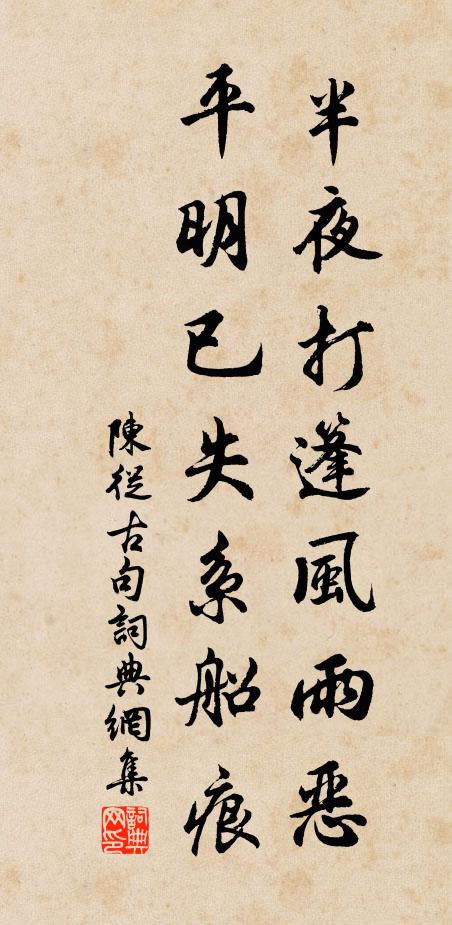 半夜打篷風雨惡
平明已失系船痕
陳從古句詞典網集
詞典网印